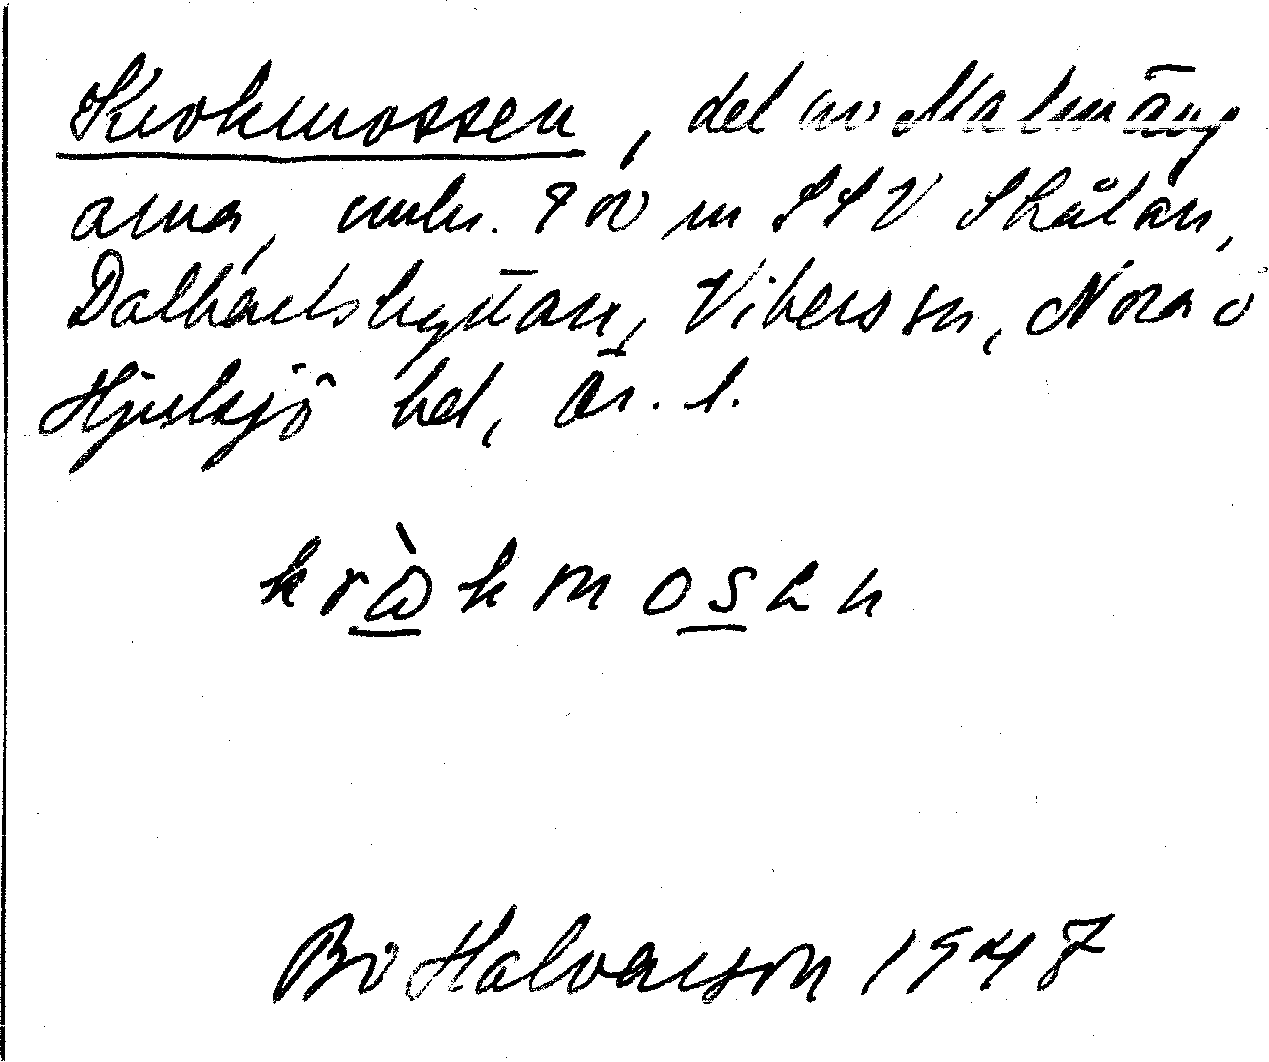 Krokmossen, del av Malmäng
arna, omkr. 900 m SSV Skålan,
Dalkarlshyttan, Vikers sn, Nora o
Hjulsjö bd, Ör. l.
kråkmosen
Bo Halvarson 1947